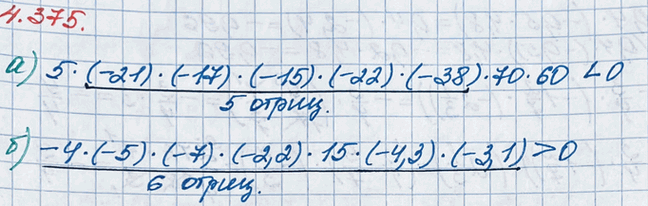 4.375.
а) 5·(-21)·(-17)·(-15)·(-22)·(-38)·70·60 < 0
5 отриц.
б) -4·(-5)·(-7)·(-2,2)·15·(-4,3)·(-3,1) > 0
6 отриц.